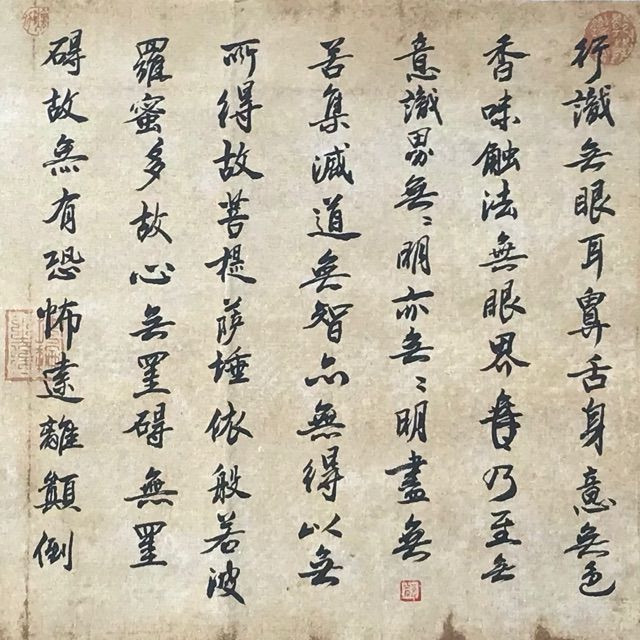 行識無眼耳鼻舌身意無色
香味触法無眼界乃至無
意識界無〻明亦無〻明盡無
苦集滅道無智亦無得以無
所得故菩提薩埵依般若波
羅蜜多故心無罣碍無罣
碍故無有恐怖遠離顛倒